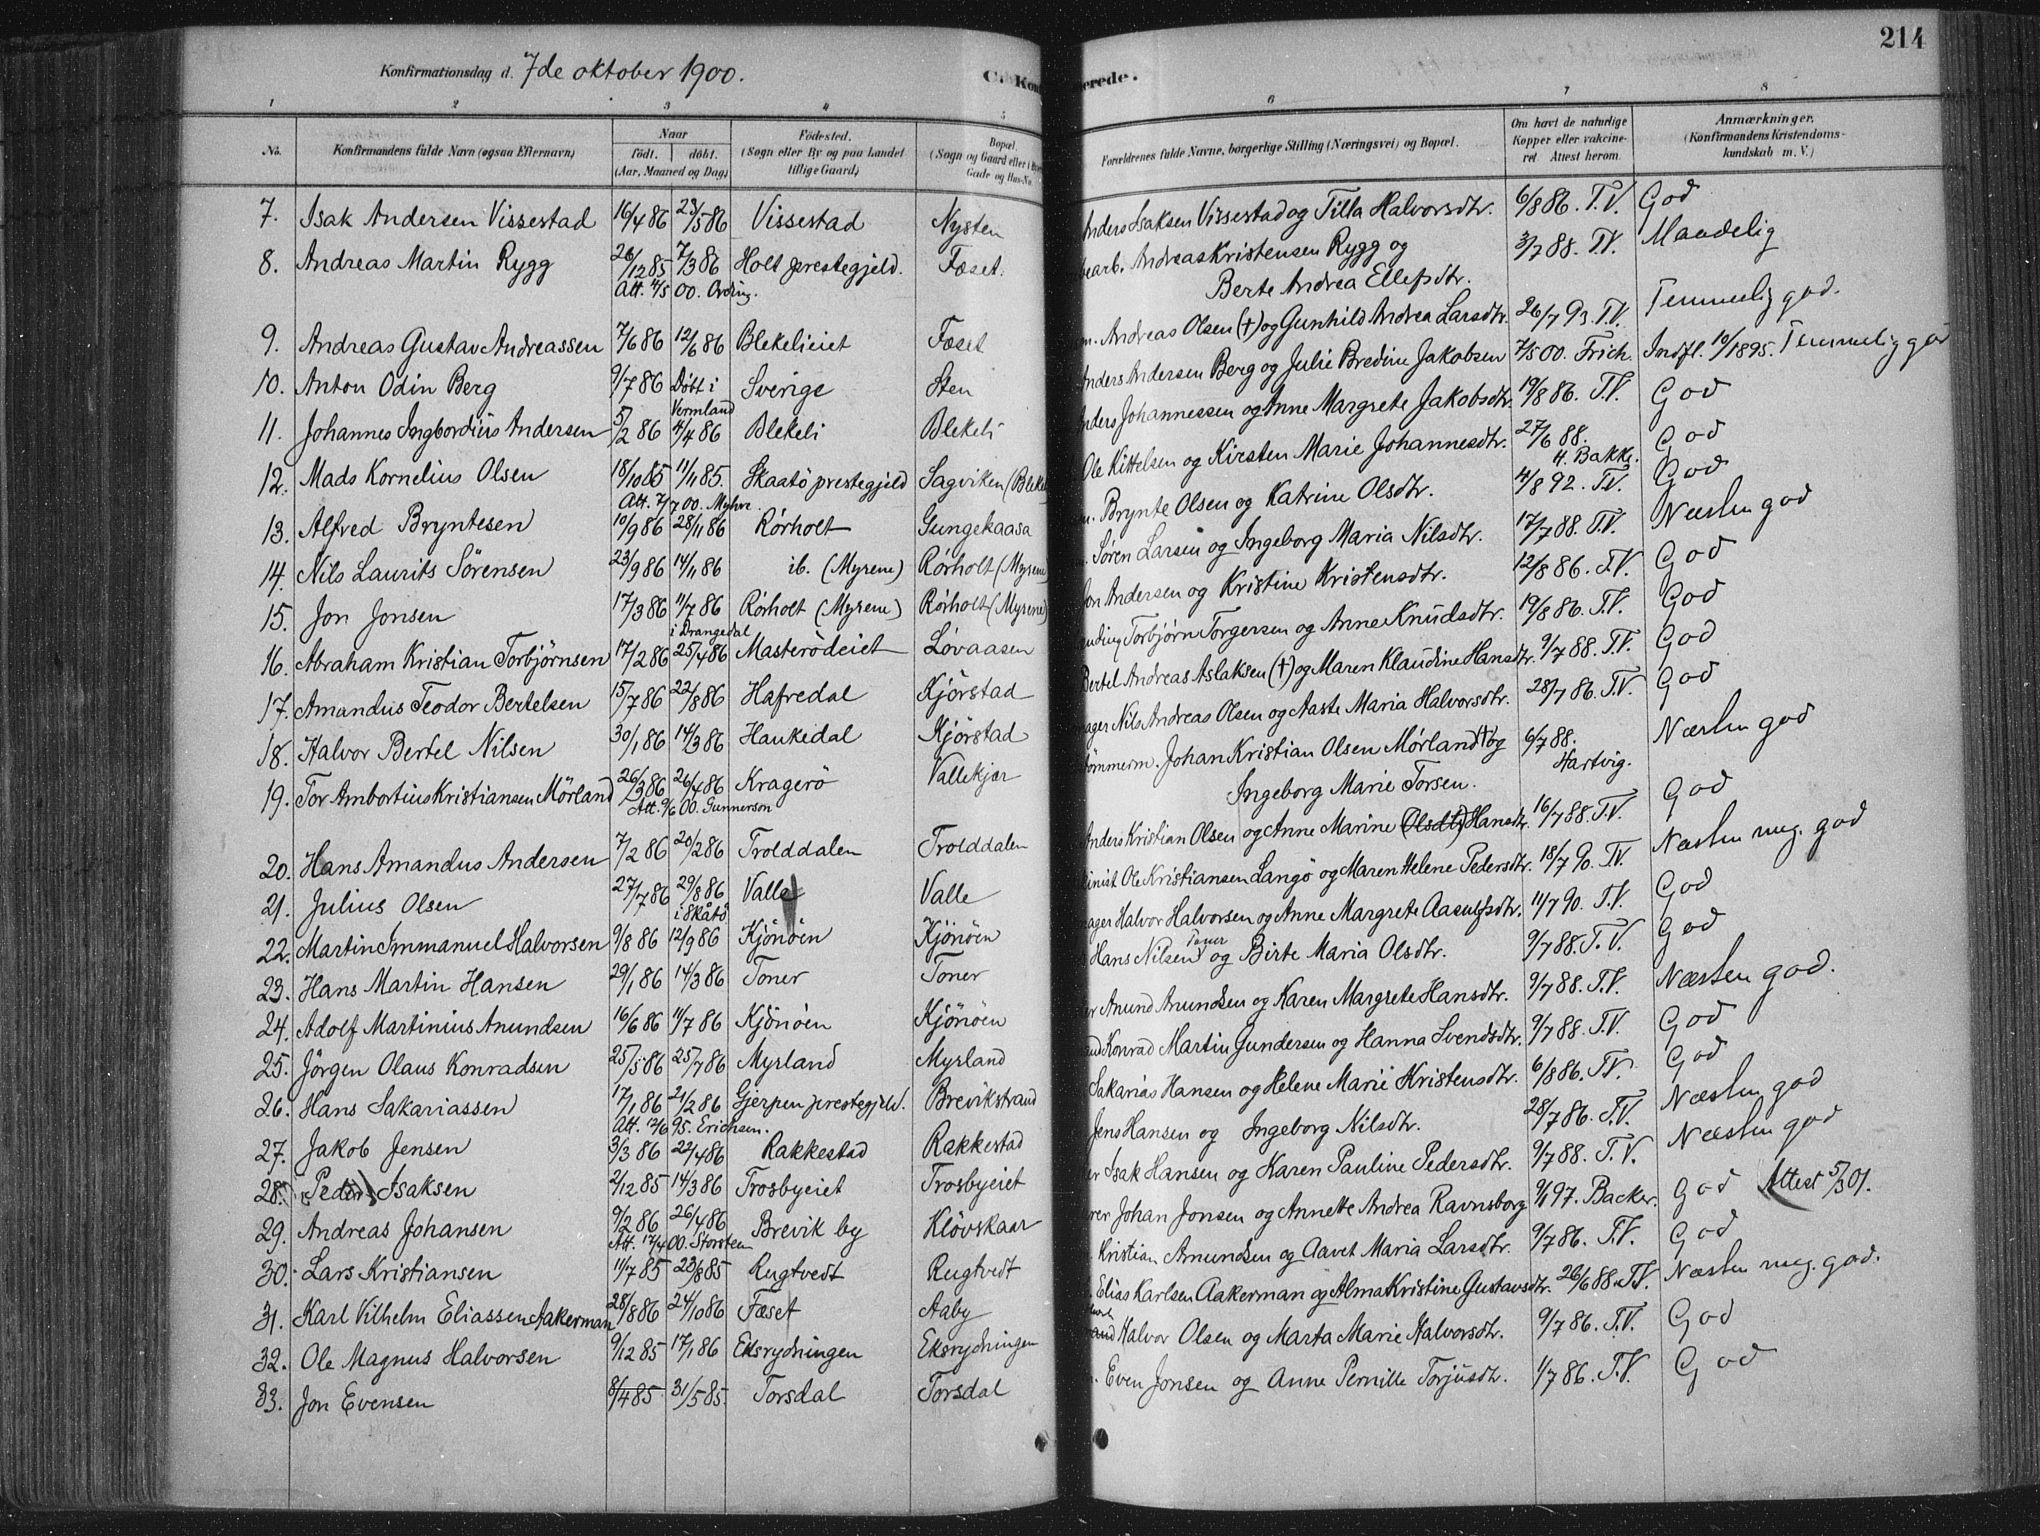 214
Konfirmationsdag d. 7de oktober 1900.
C. Kon
erede.
1 2 3 4 5 6 7 8
No. Konfirmandens fulde Navn (ogsaa Efternavn) Naar født. døbt. (Aar, Maaned og Dag) Fødested. (Sogn eller By og paa Landet tillige Gaard) Bopæl. (Sogn og Gaard eller i By Gade og Hus-No. Forældrenes fulde Navne, borgerlige Stilling (Næringsvei) og Bopæl. Om havt de naturlige Kopper eller vakcineret Attest herom. Anmærkninger. (Konfirmandens Kristendomskundskab m. V.)
7. Isak Andersen Vissestad 16/4 86 23/5 86 Vissestad Nysten Anders Isaksen Vissestad og Tilla Halvorsdtr. 6/8 86. T.V. God
8. Andreas Martin Rygg 26/12 85 7/3 86 Holt prestegjeld. Fæset. Andreas Kristensen Rygg og 3/7 88. T.V. Maadelig
Att. 4/5 00. Ording. Berte Andrea Ellefsdtr.
9. Andreas Gustav Andreassen 7/6 86 12/6 86 Blekelieiet Fæset Andreas Olsen (†) og Gunhild Andrea Larsdtr. 26/7 93. T.V. Temmelig god.
10. Anton Odin Berg 9/7 86 Døbt i Vermland Sverige Sten Anders Andersen Berg og Julie Bredine Jakobsen 7/5 00. Frich. Indfl. 10/1895. Temmelig god
11. Johannes Ingbordius Andersen 5/2 86 4/4 86 Blekeli Blekeli Anders Johannessen og Anne Margrete Jakobsdtr. 19/8 86. T.V. God
12. Mads Kornelius Olsen 18/10 85 11/11 85. Skaatø prestegjeld Sagviken (Blekeli Ole Kittelsen og Kirsten Marie Johannesdtr. 27/6 88. H. Bakke. God
Att. 7/7 00. Myhre.
13. Alfred Bryntesen 10/9 86 28/11 86 Rørholt Gungekaasa Brynte Olsen og Katrine Olsdtr. 4/8 92. T.V. God
14. Nils Laurits Sörensen 23/9 86 14/11 86 ib. (Myrene) Rørholt (Myrene) Søren Larsen og Ingeborg Maria Nilsdtr. 17/7 88. T.V. Næsten god
15. Jon Jonsen 17/3 86 11/7 86 Rørholt (Myrene) Rørholt (Myrene) Jon Andersen og Kristine Kristensdtr. 12/8 86. T.V. God
i Drangedal
16. Abraham Kristian Torbjørnsen 17/2 86 25/4 86 Masterødeiet Løvaasen Torbjørn Torgersen og Anne Knudsdtr. 19/8 86. T.V. God
17. Amandus Teodor Bertelsen 15/7 86 22/8 86 Hafredal Kjørstad Bertel Andreas Aslaksen (†) og Maren Klaudine Hansdtr. 9/7 88. T.V. God
18. Halvor Bertel Nilsen 30/1 86 14/3 86 Haukedal Kjørstad Nils Andreas Olsen og Aaste Maria Halvorsdtr. 28/7 86. T.V. God
19. Tor Ambortius Kristiansen Mörland 26/3 86 26/4 86 Kragerö Vallekjær Tömmerm. Johan Kristian Olsen Mørland (†) og 6/7 88. Hartvig. Næsten god
Att. 9/6 00. Gunnerson Ingeborg Marie Torsen.
20. Hans Amandus Andersen 7/2 86 20/2 86 Trolddalen Trolddalen Anders Kristian Olsen og Anne Marine (Olsdtr.) Hansdtr. 16/7 88. T.V. God
21. Julius Olsen 27/7 86 29/8 86 Valle Valle Ole Kristiansen Langø og Maren Helene Pedersdtr. 18/7 90. T.V. Næsten meg. god
i Skåtö
22. Martin Immanuel Halvorsen 9/8 86 12/9 86 Kjönöen Kjönöen Halvor Halvorsen og Anne Margrete Aasulfsdtr. 11/7 90. T.V. God
23. Hans Martin Hansen 29/1 86 14/3 86 Toner Toner Hans Nilsen Toner og Birte Maria Olsdtr. 9/7 88. T.V. God
24. Adolf Martinius Anundsen 16/6 86 11/7 86 Kjönöen Kjönöen Anund Anundsen og Karen Margrete Hansdtr. 9/7 88. T.V. Næsten god.
25. Jörgen Olaus Konradsen 25/5 86 25/7 86 Myrland Myrland Konrad Martin Gundersen og Hanna Svendsdtr. 9/7 88. T.V. God
26. Hans Sakariassen 17/1 86 21/2 86 Gjerpen prestegjeld. Brevikstrand Sakarias Hansen og Helene Marie Kristensdtr. 6/8 86. T.V. God
Att. 12/6 95. Erichsen.
27. Jakob Jensen 3/3 86 22/4 86 Rakkestad Rakkestad Jens Hansen og Ingeborg Nilsdtr. 28/7 86. T.V. Næsten god
28. (Peder) Isaksen 2/12 85 14/3 86 Trosbyeiet Trosbyeiet Isak Hansen og Karen Pauline Pedersdtr. 9/7 88. T.V. Næsten god
29. Andreas Johansen 9/2 86 26/4 86 Brevik by Klövskaar Johan Jonsen og Annette Andrea Ravnsborg 9/1 97. Backer. God Attest 5/3 01.
Att. 17/4 00. Storsten
30. Lars Kristiansen 11/7 85 23/8 85 Rugtvedt Rugtvedt Kristian Amundsen og Aavet Maria Larsdtr. 9/7 86. T.V. God
31. Karl Vilhelm Eliassen Aakerman 28/8 86 24/10 86 Fæset Aaby Elias Karlsen Aakerman og Alma Kristine Gustavsdtr. 26/6 88. T.V. Næsten meg. god.
32. Ole Magnus Halvorsen 9/12 85 17/1 86 Eksrydningen Eksrydningen Halvor Olsen og Marta Marie Halvorsdtr. 9/7 86. T.V. God
33. Jon Evensen 8/4 85 31/5 85. Torsdal Torsdal Even Jonsen og Anne Pernille Torjusdtr. 1/7 86. T.V. God